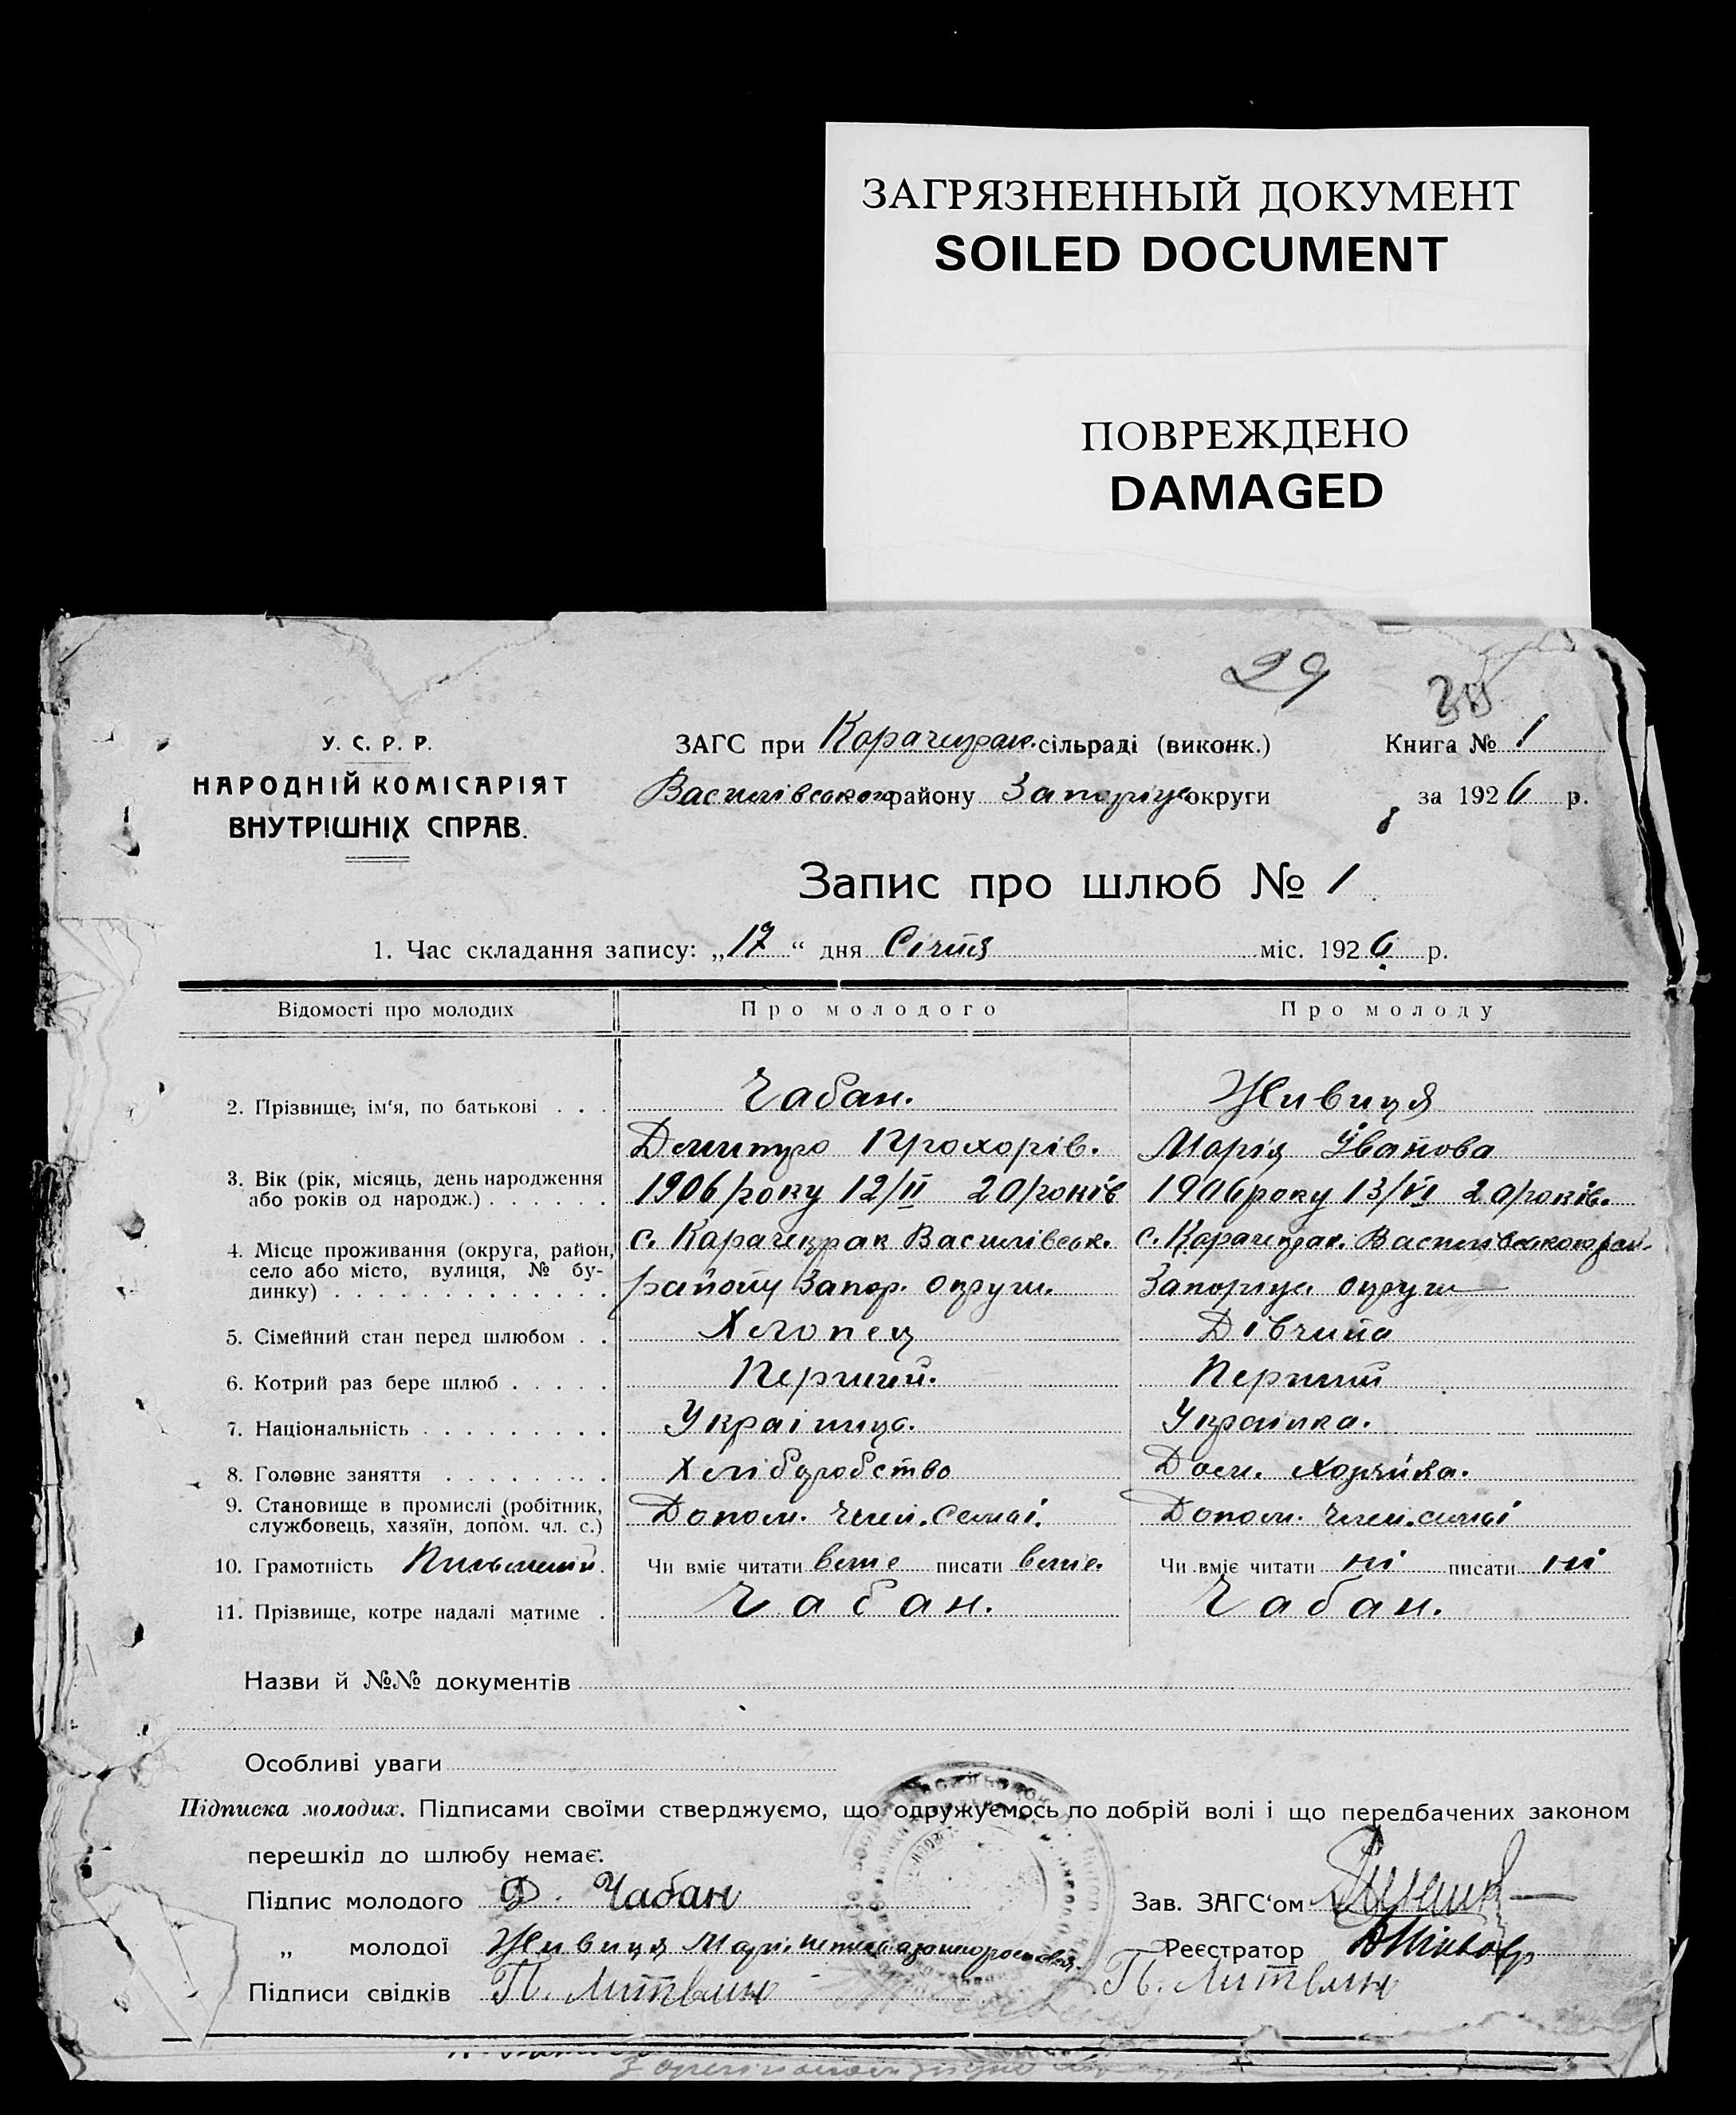 ЗАГРЯЗНЕННЫЙ ДОКУМЕНТ
SOILED DOCUMENT
ПОВРЕЖДЕНО
DAMAGED
29
У. С. Р. Р.
НАРОДНІЙ КОМІСАРІЯТ
ВНУТРІШНІХ СПРАВ.
ЗАГС при Карачекрак. сільраді (виконк.)
Книга № 1
Василівського району Запоріць округи
за 1926 р.
Запис про шлюб № 1
1. Час складання запису: „17“ дня Січня міс. 1926 р.
Відомості про молодих Про молодого Про молоду
2. Прізвище, ім‘я, по батькові . . . Чабан. Живиця
Дмитро Прохорів. Марія Іванова
3. Вік (рік, місяць, день народження
або років од народж.) . . . . . . 1906 року 12/II 20 років 1906 року 13/VI 20 років.
4. Місце проживання (округа, район, с. Карачекрак Василівськ. с. Карачекрак. Василівського рай.
село або місто, вулиця, № бу-
динку) . . . . . . . . . . . . . району Запор. округи. Запоріц. округи
5. Сімейний стан перед шлюбом . . Хлопец Дівчина
6. Котрий раз бере шлюб . . . . . Перший. Перший
7. Національність . . . . . . . . . Українец. Українка.
8. Головне заняття . . . . . . . . Хлібуробство Дом. хозяйка.
9. Становище в промислі (робітник,
службовець, хазяїн, допом. чл. с.) Допом. член. семьі. Допом. член. симьі
10. Грамотність Письмений. Чи вміє читати вміє писати вміє. Чи вміє читати ні писати ні
11. Прізвище, котре надалі матиме . Чабан. Чабан.
Назви й №№ документів
Особливі уваги
Підписка молодих. Підписами своїми стверджуємо, що одружуємось по добрій волі і що передбачених законом
перешкід до шлюбу немає.
Підпис молодого Д. Чабан
Зав. ЗАГС‘ом
„ молодої Живиця Марі.
Реєстратор
Підписи свідків П. Литвин
П. Литвин